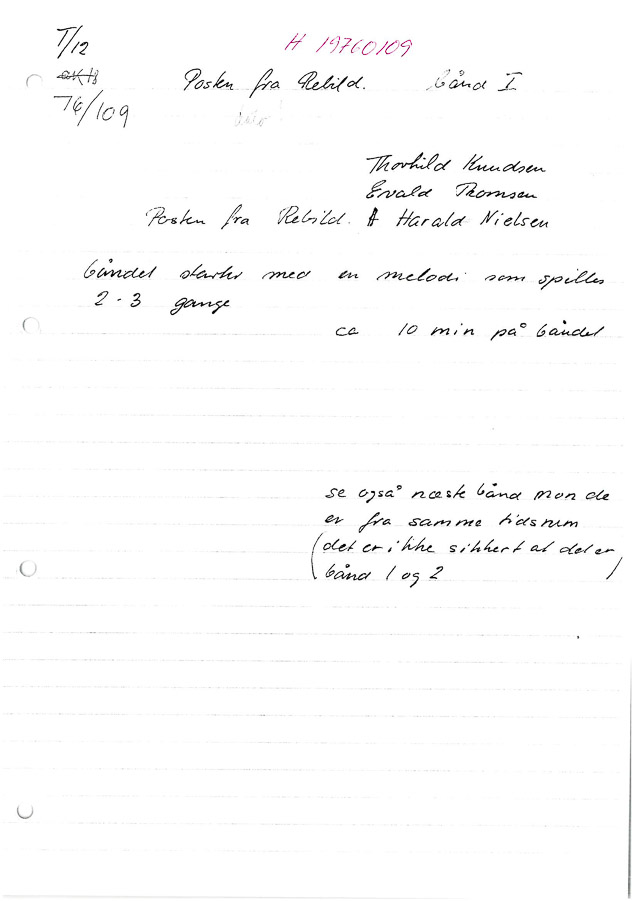 T/12
H 19760109
Posten fra Rebild. bånd I
76/109
Thorhild Knudsen
Ervald Thomsen
Posten fra Rebild. A Harald Nielsen
båndet starter med en melodi som spilles
2-3 gange
ca 10 min på båndet
se også næste bånd mon de
er fra samme tidsrum
(det er ikke sikkert at det er
bånd 1 og 2)